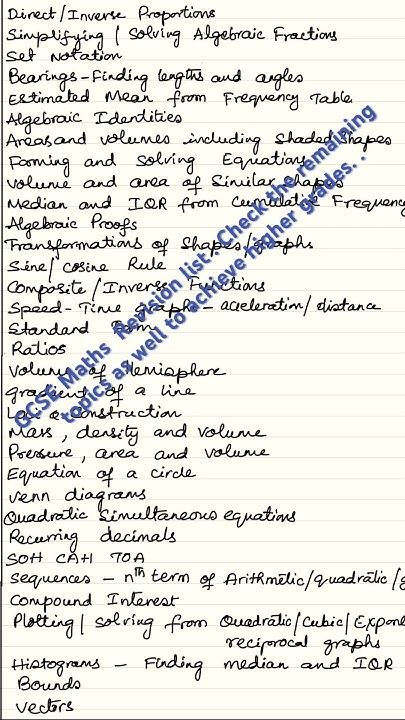 Direct/Inverse Proportions
Simplifying | Solving Algebraic Fractions
Set Notation
Bearings - Finding lengths and angles
Estimated Mean from Frequency Table
Algebraic Identities
Areas and volumes including Shaded Shapes
Forming and Solving Equations
Volume and area of Similar Shapes
Median and IQR from Cumulative Frequency
Algebraic Proofs
Transformations of Shapes/graphs
Sine/cosine Rule
Composite/Inverse Functions
Speed-Time graph - acceleration/distance
Standard Form
Ratios
Volume of Hemisphere
gradient of a line
Loci & Construction
Mass, density and volume
Pressure, area and volume
Equation of a circle
Venn diagrams
Quadratic Simultaneous equations
Recurring decimals
SOH CAH TOA
Sequences - nth term of Arithmetic/quadratic/g
Compound Interest
Plotting | Solving from Quadratic/Cubic/Expone
reciprocal graphs
Histograms - Finding median and IQR
Bounds
Vectors
GCSE Maths Revision list. Check the remaining
topics as well to achieve higher grades...